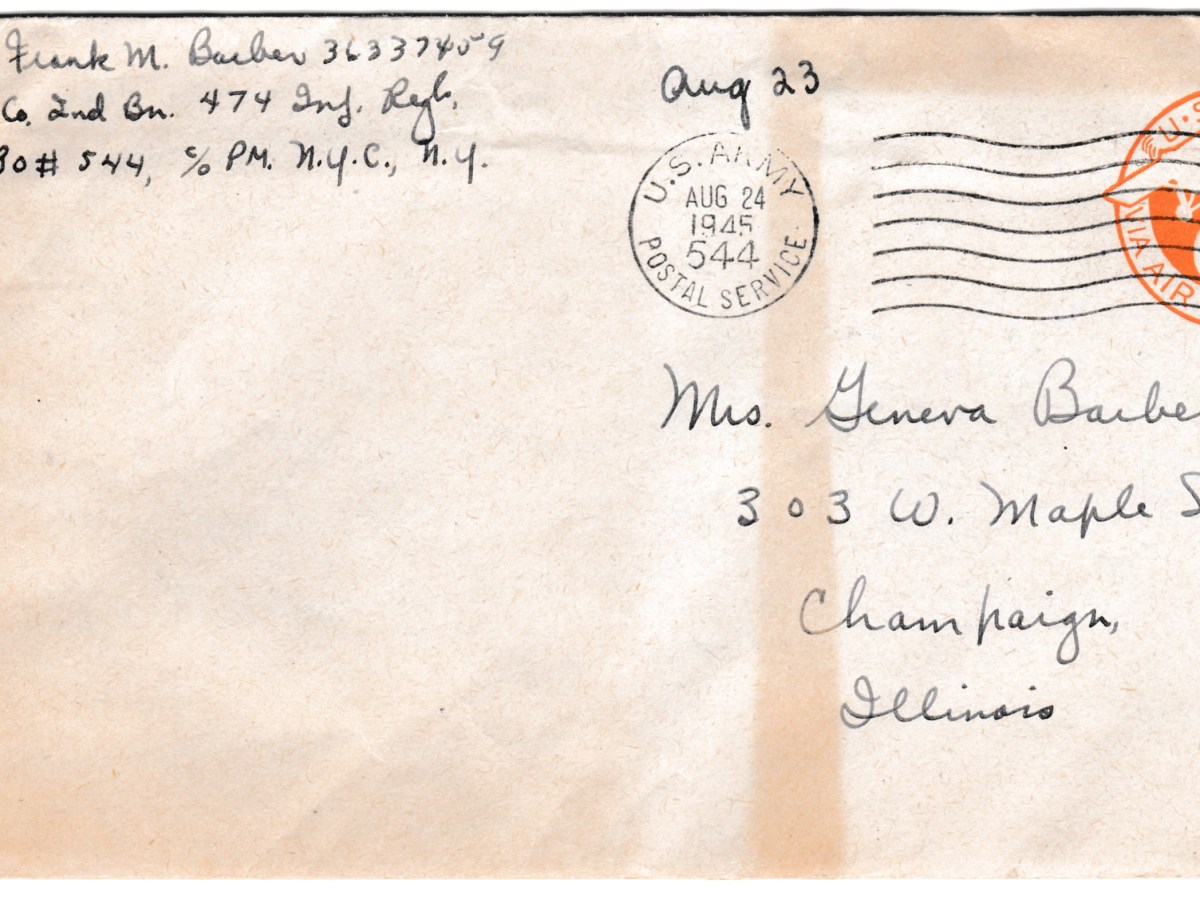 Frank M. Barber 36337459
Co. 2nd Bn. 474 Inf. Regt.
# 544, c/o PM. N.Y.C., N.Y.
Aug 23
U.S. ARMY
AUG 24
1945
544
POSTAL SERVICE
U.S.
VIA AIR
Mrs. Geneva Barbe
303 W. Maple S
Champaign,
Illinois